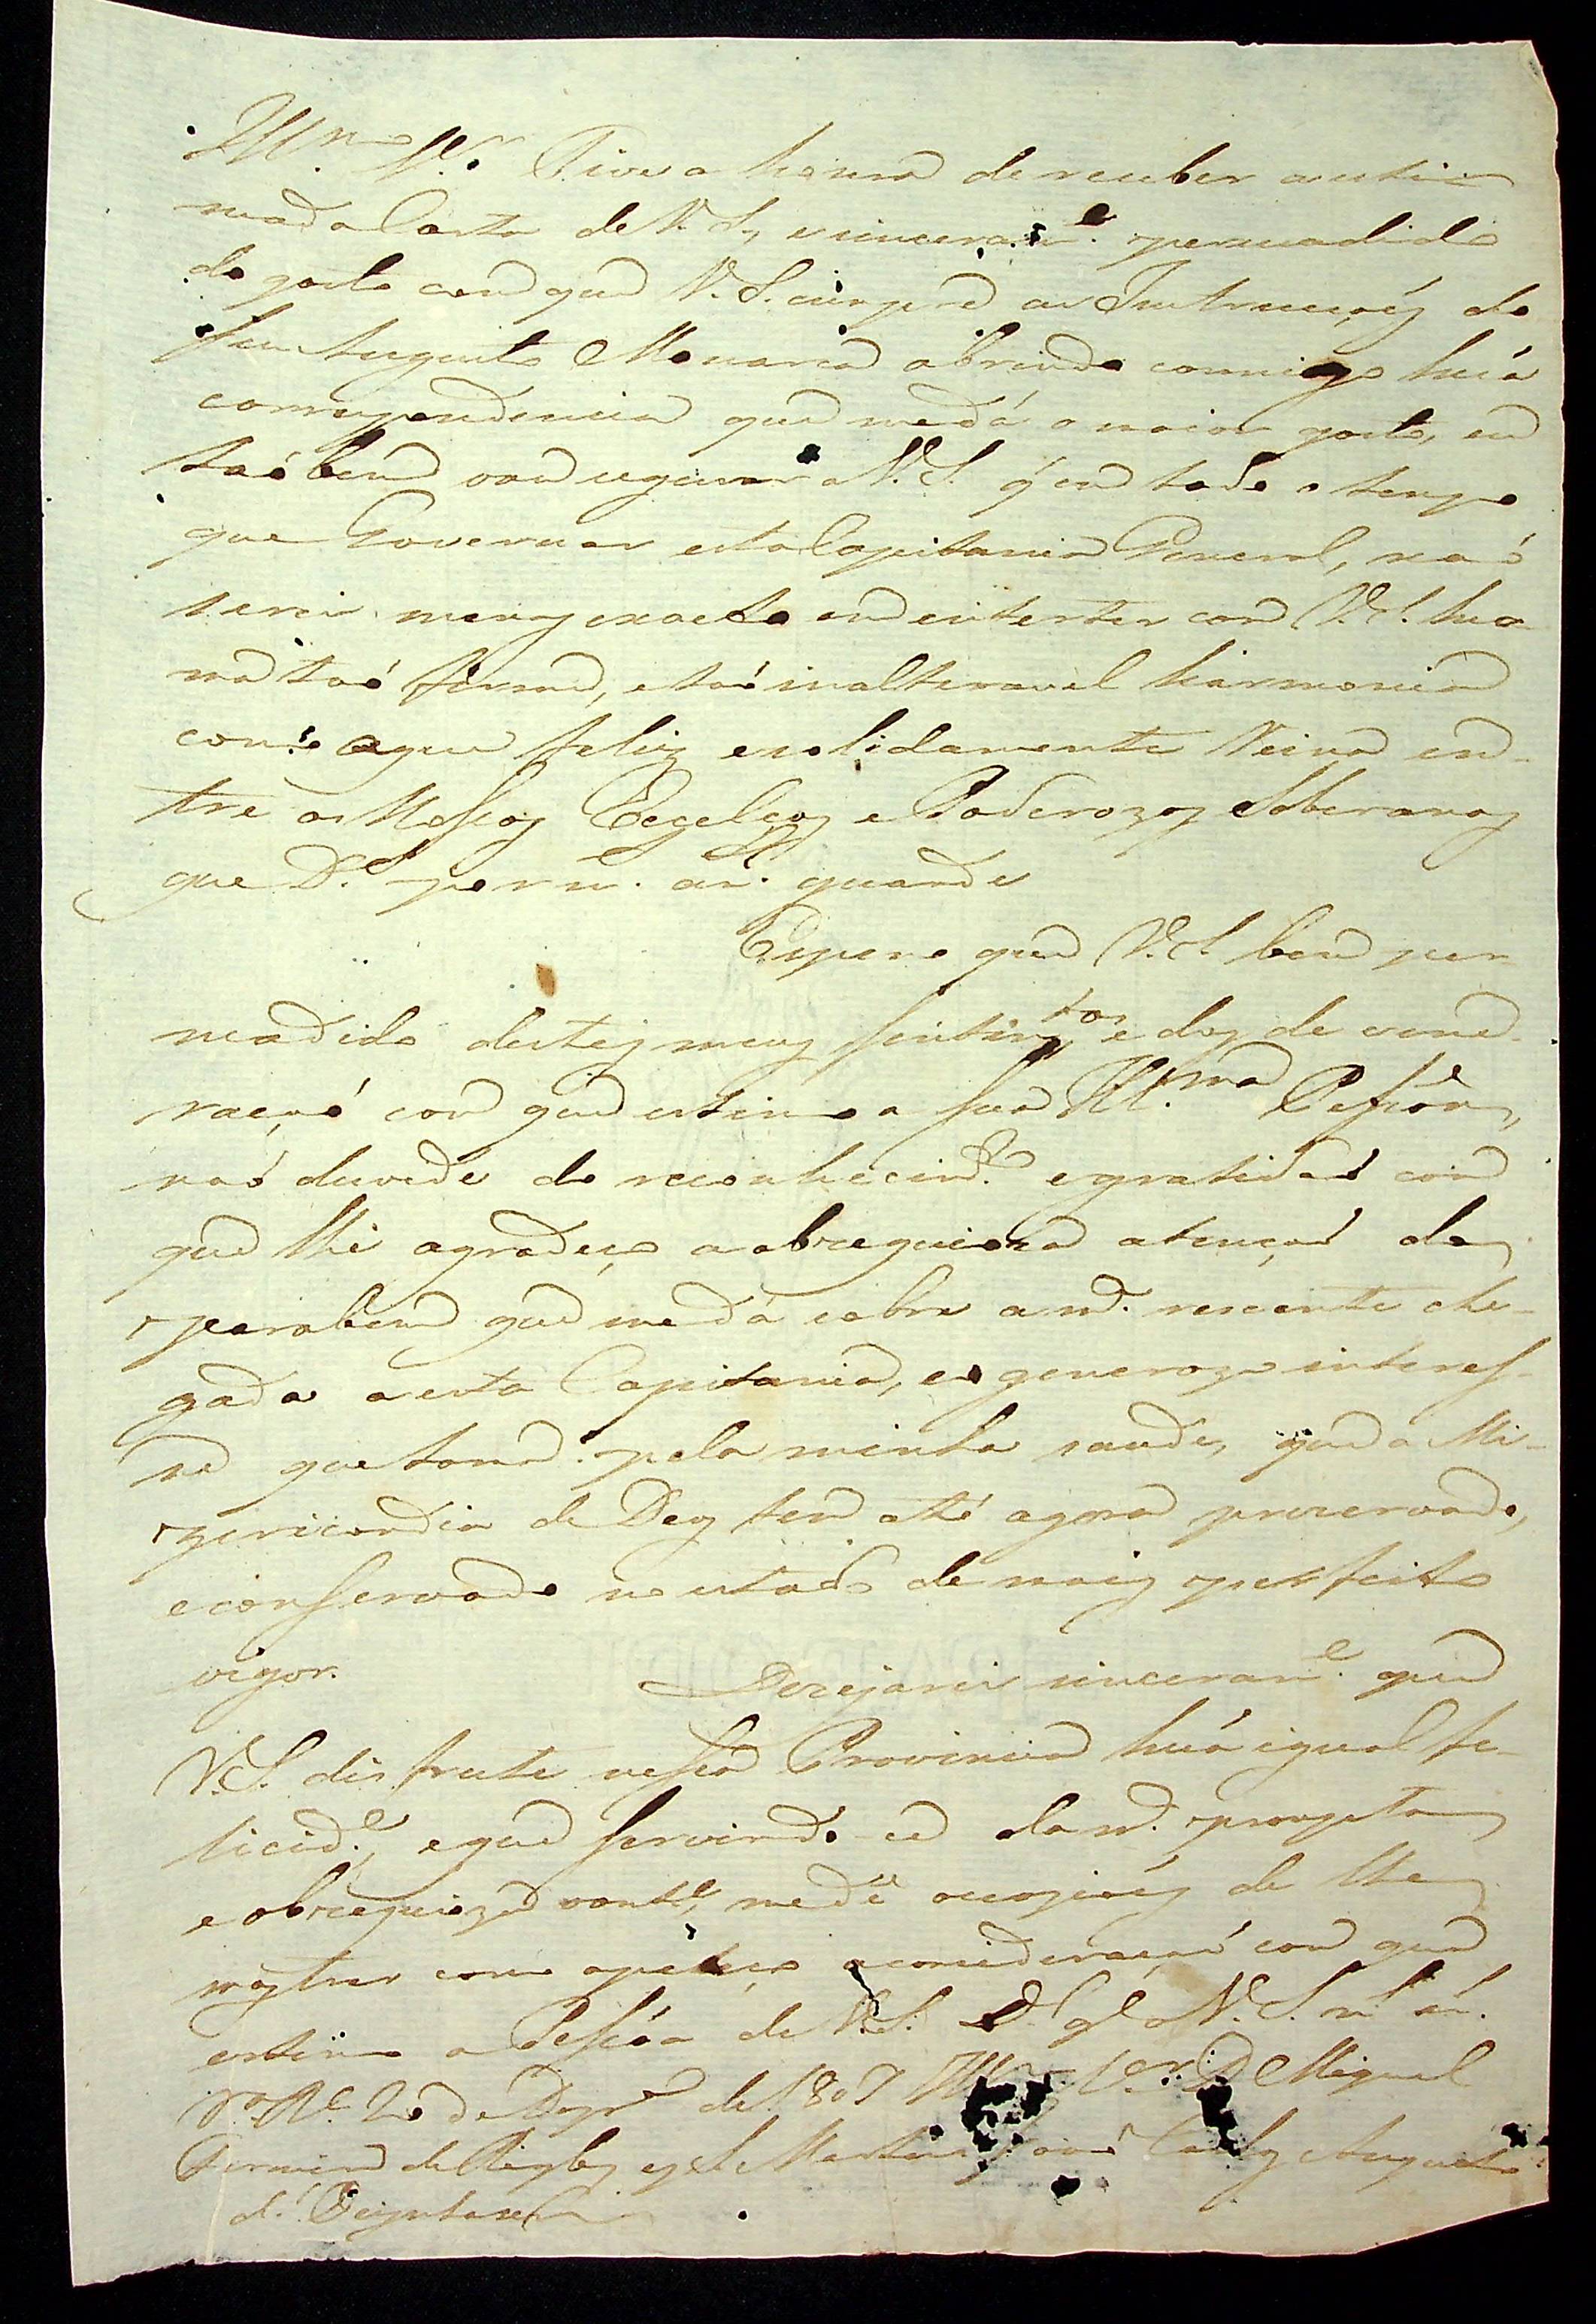 Ill.mo S.or Tive a honra de receber a esti-
mada Carta de V. S., e sinceram.e persuadido
do gosto com que V. S. cumpre as Instrucçoẽs do
seu Augusto Monarca abrindo comigo huã
correspondencia que me dá o maior gosto, eu
taõbem vou segurar a V. S. q̃ em todo o tempo
que Governar esta Capitania General, naõ
serei menos exacto em enterter com V. S. hu-
ma taõ firme, e taõ inalteravel harmonia
como a que feliz e solidamente Reina en-
tre os Nossos Excelços e Poderozos Soberanos
que D.s por m. an. guarde
Espero que V. S. bem per-
suadido destes meus sentim.tos e dos de vene-
raçaõ com que estimo a sua Ill.ma Pessôa,
naõ duvide do reconhecim.to e gratidaõ com
que lhe agradeço a obsequioza atençaõ do
parabem que me dá sobre a m.a rescente che-
gada a esta Capitania, e o generozo interes-
se que toma pela minha saude, que a Mi-
zericordia de Deos tem até agora prezervado,
e conservado no estado de mais perfeito
vigor.
Dezejarei sinceram.e que
V. S. disfrute nessa Provincia huã igual fe-
licid.e, e que servindo-se da m.a prompta
e obzequioza vont.e, me dê occazioẽs de lhe
mostrar como apeteço a consideraçaõ com que
estimo a Pessôa de V. S. D.s g.e a V. S. m.s an.s
de 1807 Ill.mo S.or D. Miguel
Fermin de Riglos y S. Martin Joaõ Carlos Augusto
d'Oeynhausen